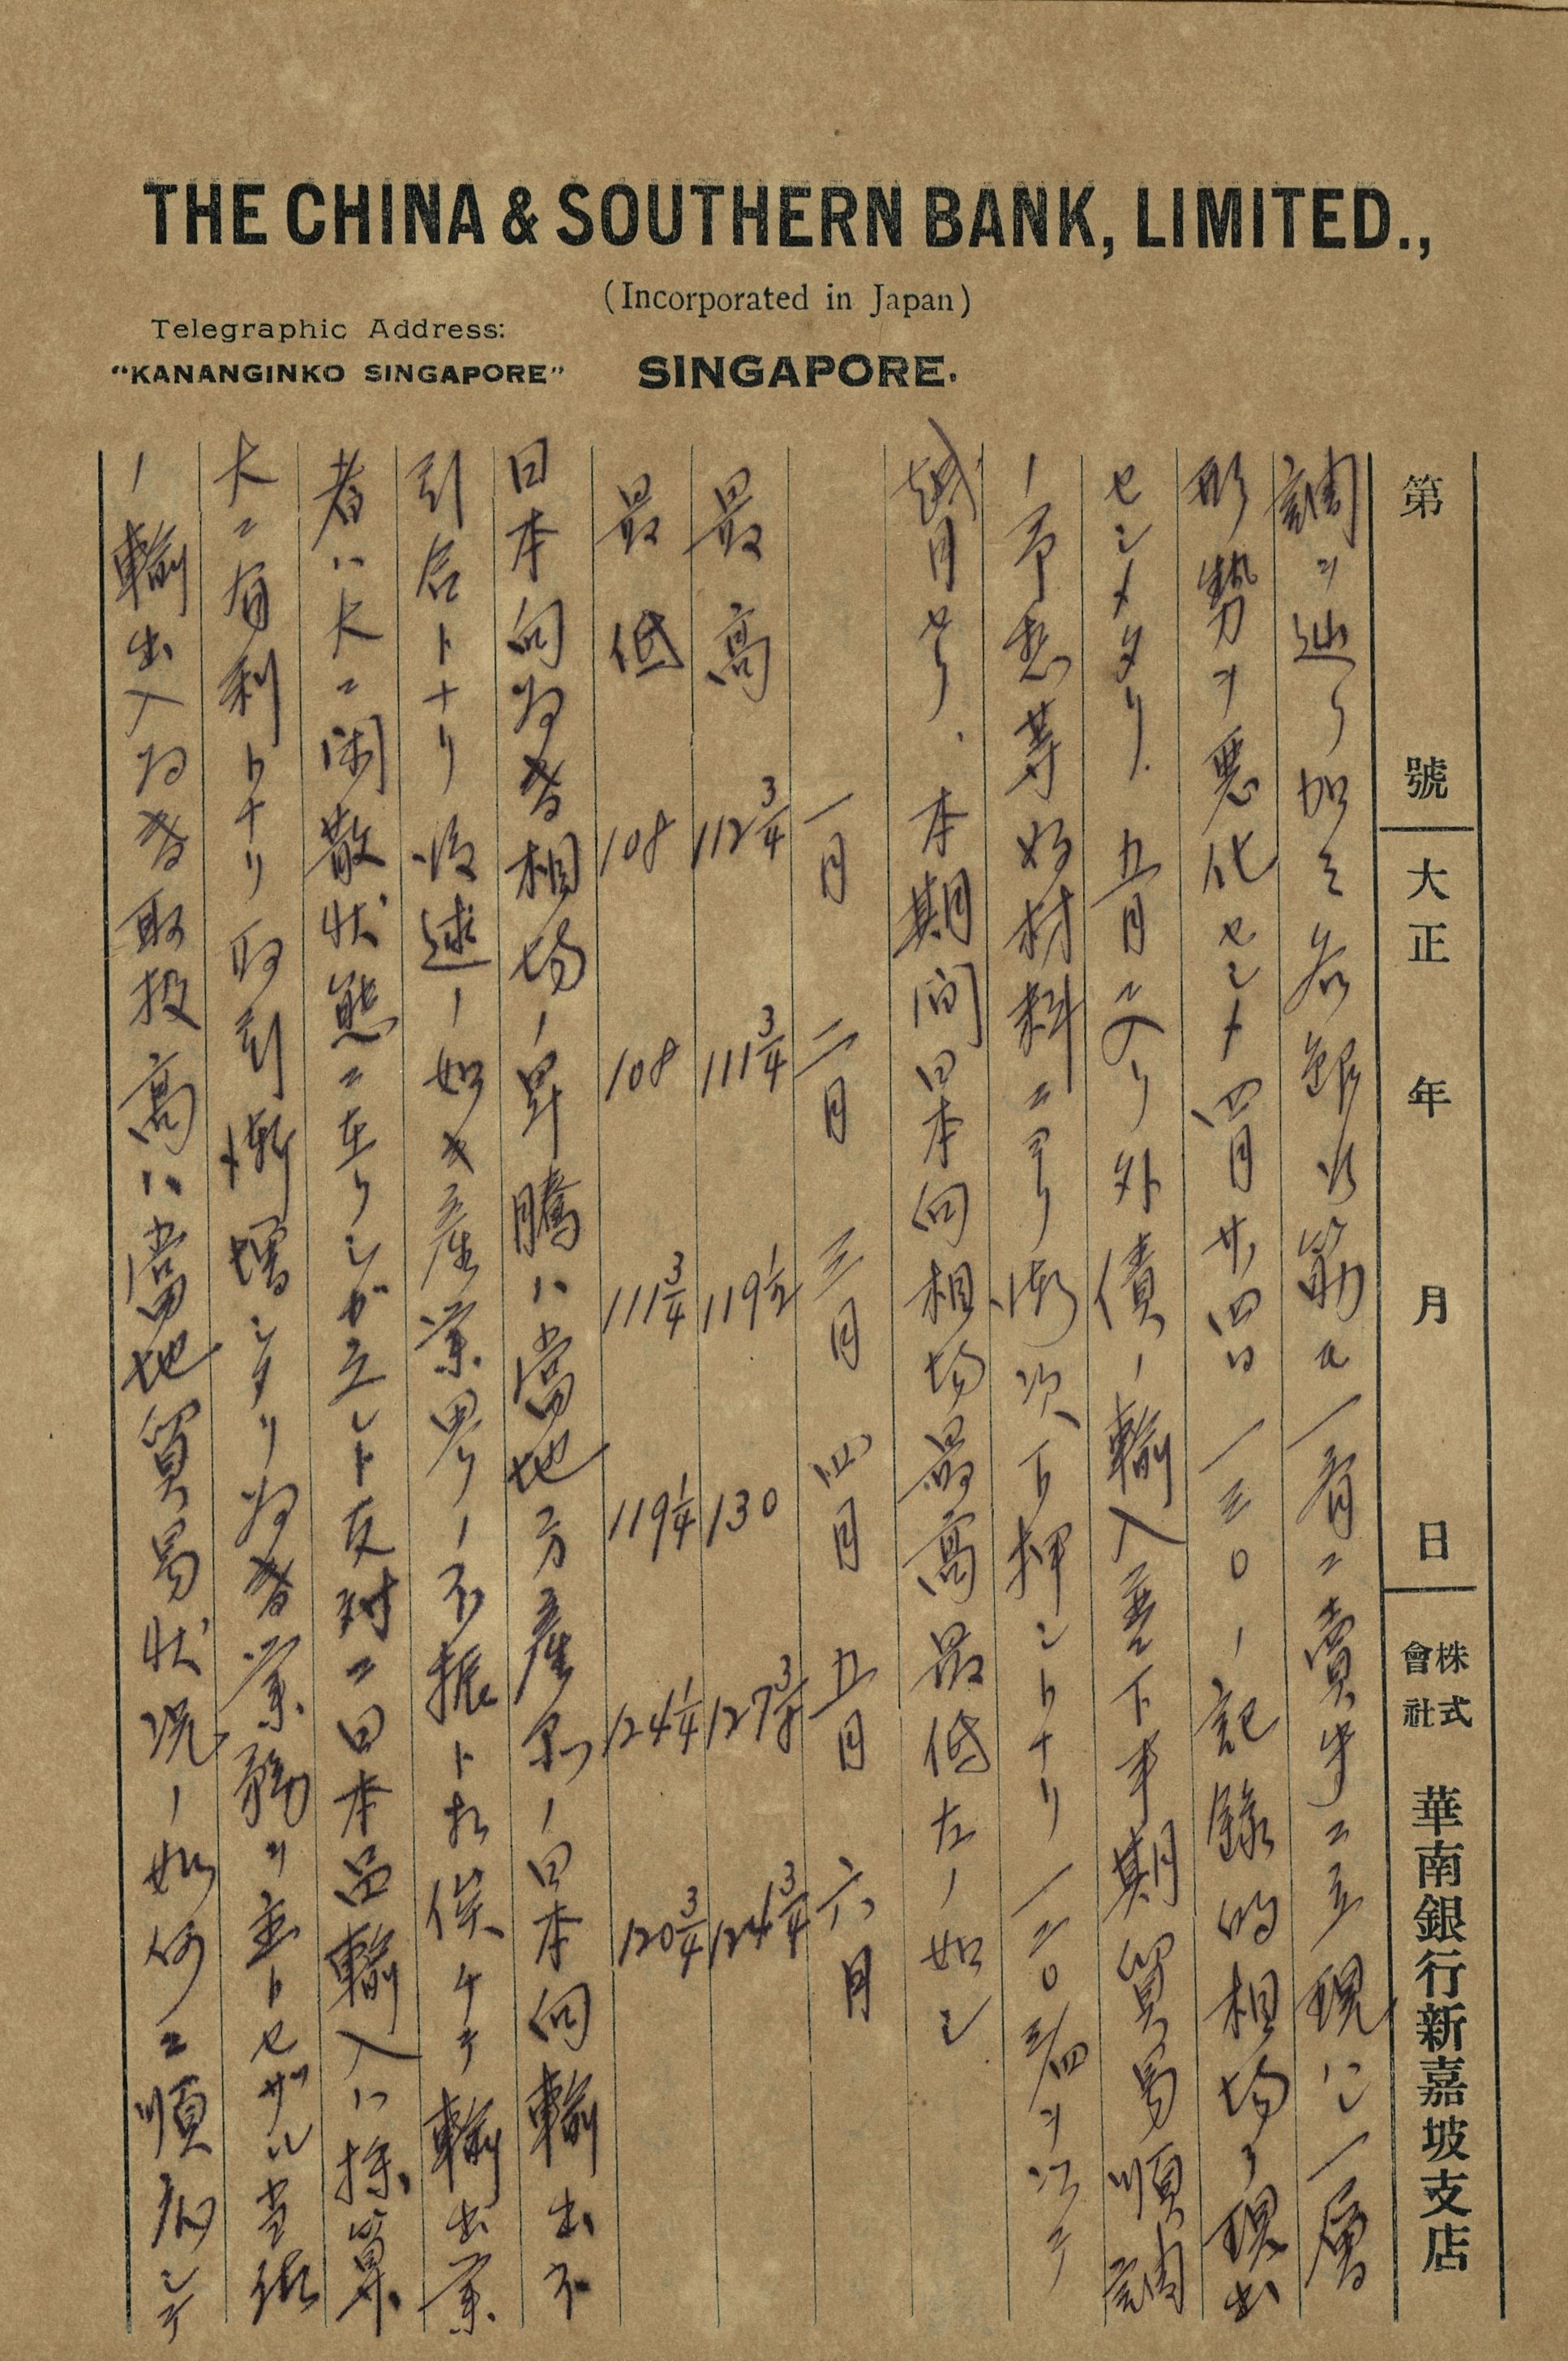 THE CHINA & SOUTHERN BANK, LIMITED.,
(Incorporated in Japan)
Telegraphic Address:
"KANANGINKO SINGAPORE"
SINGAPORE.
第 號 大正 年 月 日 株式會社 華南銀行新嘉坡支店
調ヲ辿リ加之各銀行筋モ一斉ニ賣手ニ立現ハレ一層
形勢ヲ悪化セシメ四月廿四日一三〇ノ記録的相場ヲ現出
セシメタリ. 五月ニ入リ外債ノ輸入並下半期貿易順調
ノ予想等好材料ニヨリ漸次下押シトナリ一二〇 3/四ヲ以テ
越月セリ、本期間日本向相場最高最低左ノ如シ
一月 二月 三月 四月 五月 六月
最高 112 3/4 111 3/4 119 1/2 130 127 3/4 124 3/4
最低 108 108 111 3/4 119 1/4 124 1/4 120 3/4
日本向為替相場ノ昂騰ハ當地方産品ノ日本向輸出不
引合トナリ後述ノ如キ産業界ノ不振ト相俟チテ輸出業
者ハ大ニ閑散状態ニ在リシガ之レト反対ニ日本品輸入ハ採算
大ニ有利トナリ取引漸増シタリ為替業務ヲ主トセザル當行
ノ輸出入為替取扱高ハ當地貿易状況ノ如何ニ順応シテ